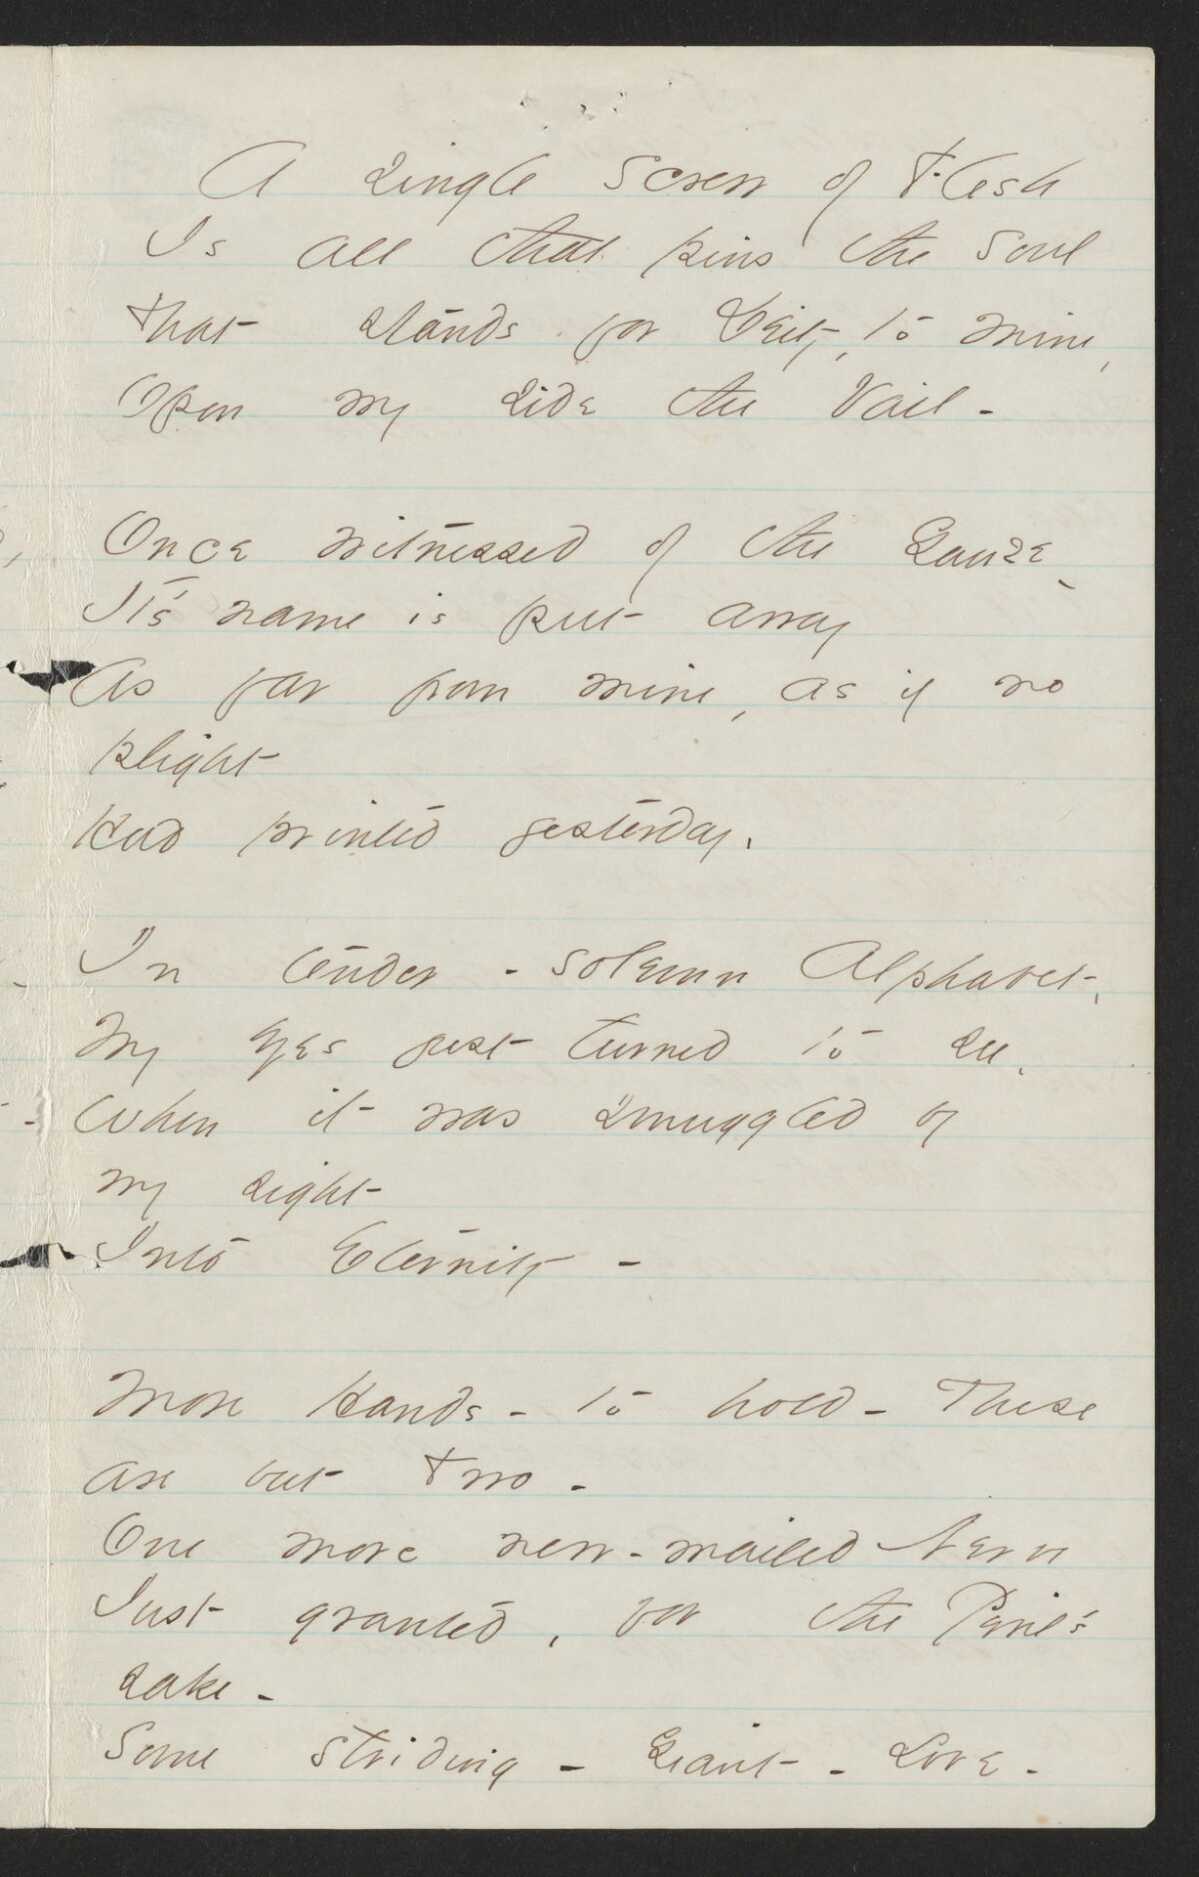 A single Screw of Flesh
Is all that pins the Soul
That stands for Deity, to mine,
Opon my side the Vail -
Once witnessed of the Gauze -
It's name is put away
As far from mine, as if no
plight
Had printed yesterday,
In tender - solemn Alphabet,
My eyes just turned to see,
When it was smuggled by
my sight
Into Eternity -
More Hands - to hold - These
are but Two -
One more new-mailed Nerve
Just granted, for the Peril's
sake -
Some striding - Giant - Love -